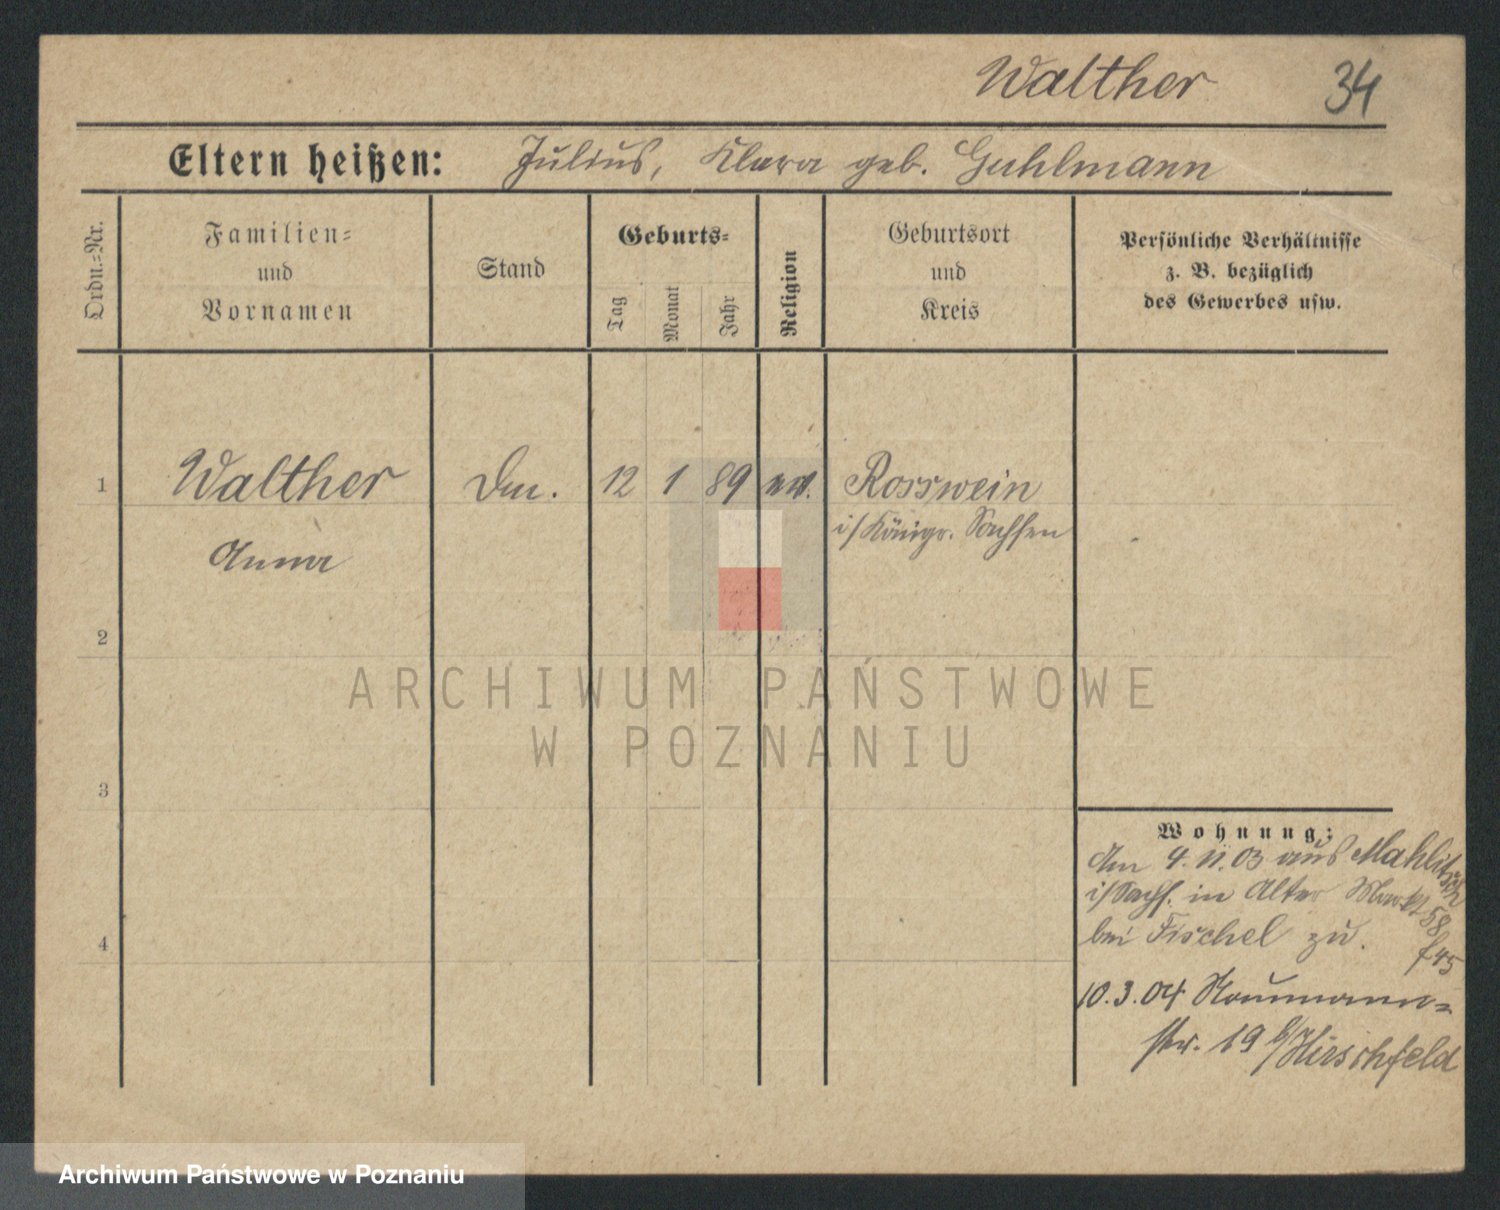 Walther 34
Eltern heißen: Julius, Klara geb. Guhlmann
Ordn.=Nr.
Familien=
und
Vornamen
Stand
Geburts=
Tag
Monat
Jahr
Religion
Geburtsort
und
Kreis
Persönliche Verhältnisse
z. B. bezüglich
des Gewerbes usw.
1 Walther 12 1 89 ev. Rosswein
i/Königr. Sachsen
Anna
2
ARCHIWUM PAŃSTWOWE
W POZNANIU
3
Wohnung:
Am 4.11.03 aus
i/Sachs. in Alter Markt 58
bei Fischel zu. f 45
10.3.04 Naumann=
str. 19 b/Hirschfeld
4
Archiwum Państwowe w Poznaniu